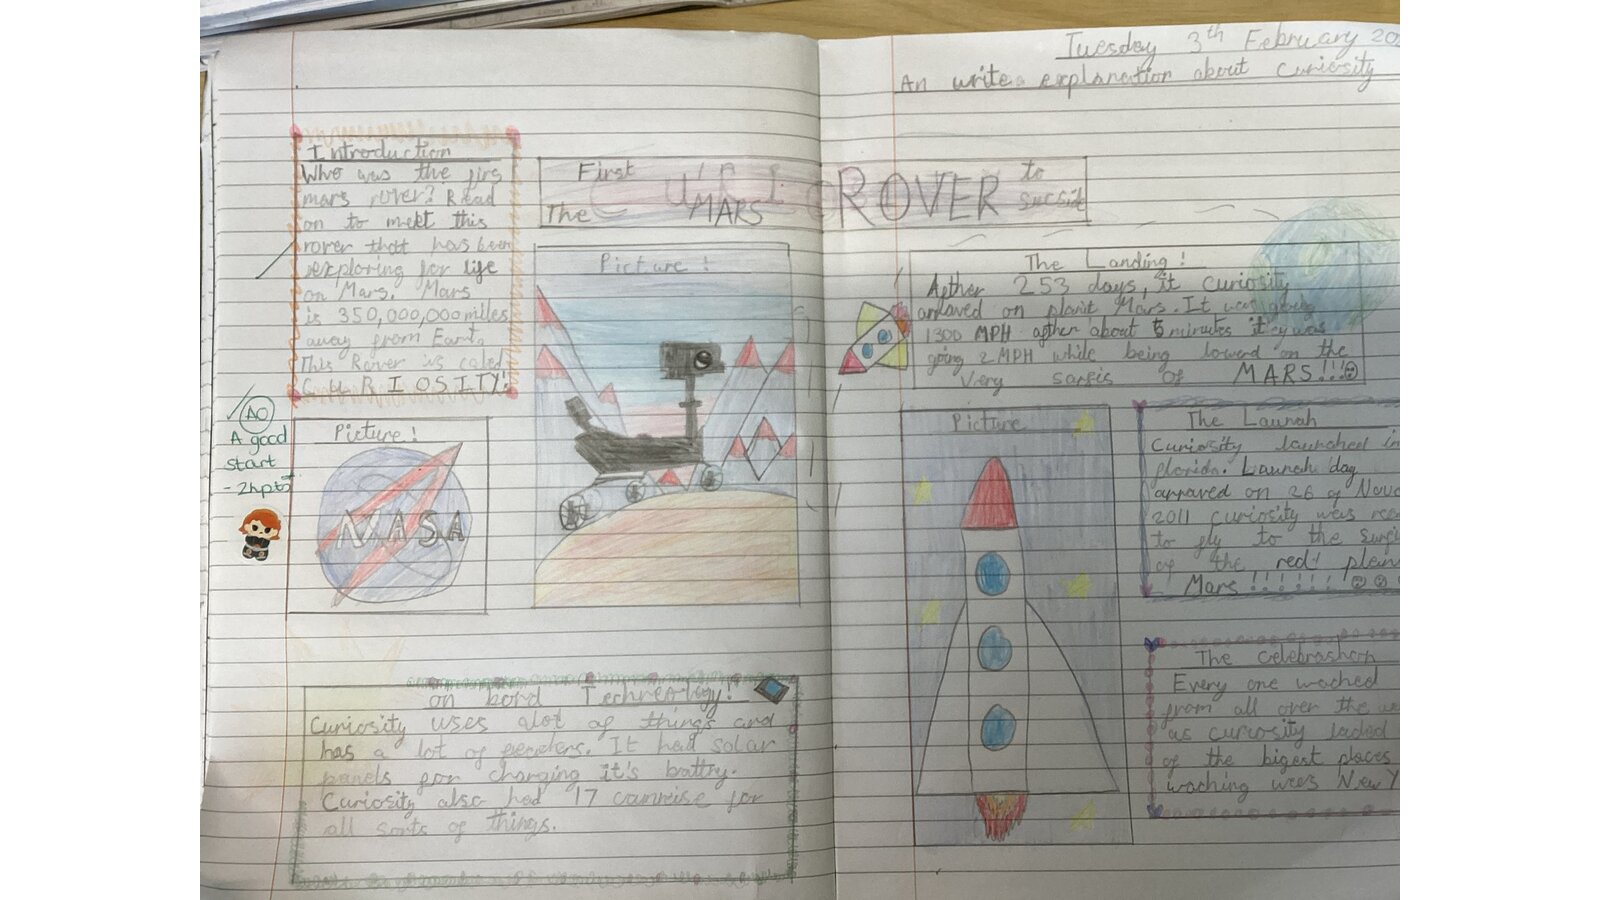 Tuesday 3th February 20
An write explanation about Curiosity
Introduction
Who was the firs
mars rover? Read
on to meet this
rover that has been
exploring for life
on Mars. Mars
is 350,000,000 miles
away from Eart.
This Rover is caled
CURIOSITY!
First
The MARS ROVER to
Picture!
AO
A good
start
- 2hpts
Picture!
NASA
on bord Technealogy!
Curiosity uses alot of things and
has a lot of It had solar
panels for charging it's battry.
Curiosity also had 17 for
all sorts of things.
The Landing!
Agther 253 days, it curiosity
arraved on planit Mars. It was going
1300 MPH agther about 5 minutes it was
going 2 MPH while being lowerd on the
Very of MARS!!!
Picture
The Launah
Curiosity launched in
florida. Launah day
arraved on 26 of Nove
2011 curiosity was
to fly to the
of the red
Mars!!!!!!!
The celebrashon
Every one wached
from all over the
as curiosity laded
of the biggest places
waching wees New Y